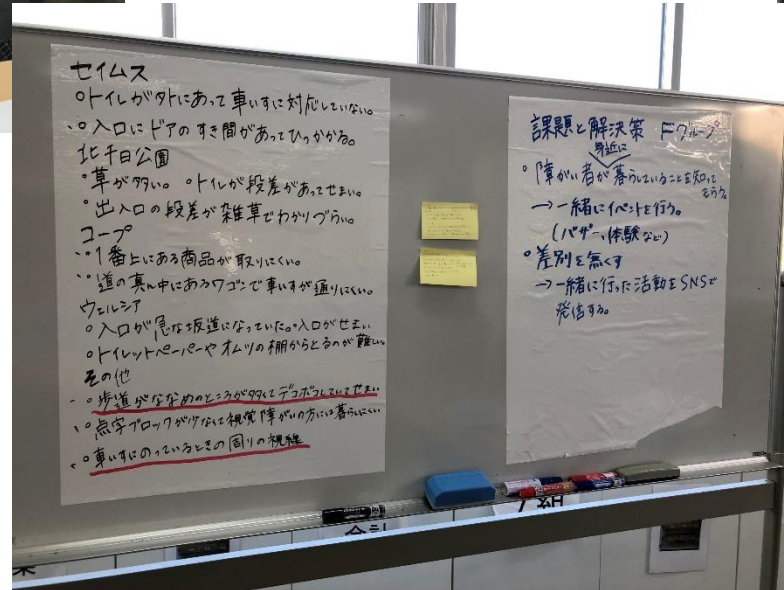 セイムス
○トイレが外にあって車いすに対応していない。
○入口にドアのすき間があってひっかかる。
北千日公園
○草が多い。○トイレが段差があってせまい。
○出入口の段差が雑草でわかりづらい。
コープ
○1番上にある商品が取りにくい。
○道の真ん中にあるワゴンで車いすが通りにくい。
ウェルシア
○入口が急な坂道になっていた。○入口がせまい
○トイレットペーパーやオムツの棚からとるのが難しい。
その他
○歩道がななめのところが多くてデコボコしていてせまい
○点字ブロックが少なくて視覚障がいの方には暮らしにくい
○車いすにのっているときの周りの視線
課題と解決策 Fグループ
身近に
○障がい者が暮らしていることを知って
もらう。
→一緒にイベントを行う。
(バザー、体験など)
○差別を無くす
→一緒に行った活動をSNSで
発信する。